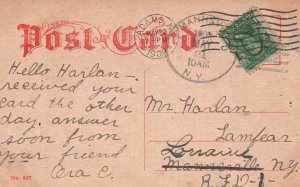 Post Card
ADAMS
N.Y.
1908
MANNSV
MAY
10AM
N.Y.
Hello Harlan—
received your
card the other
day, answer
soon from
your friend
Ora C.
Mr. Harlan
Lamfear
Lorraine
Mannsville N.Y.
R.F.D-1-
No. 507